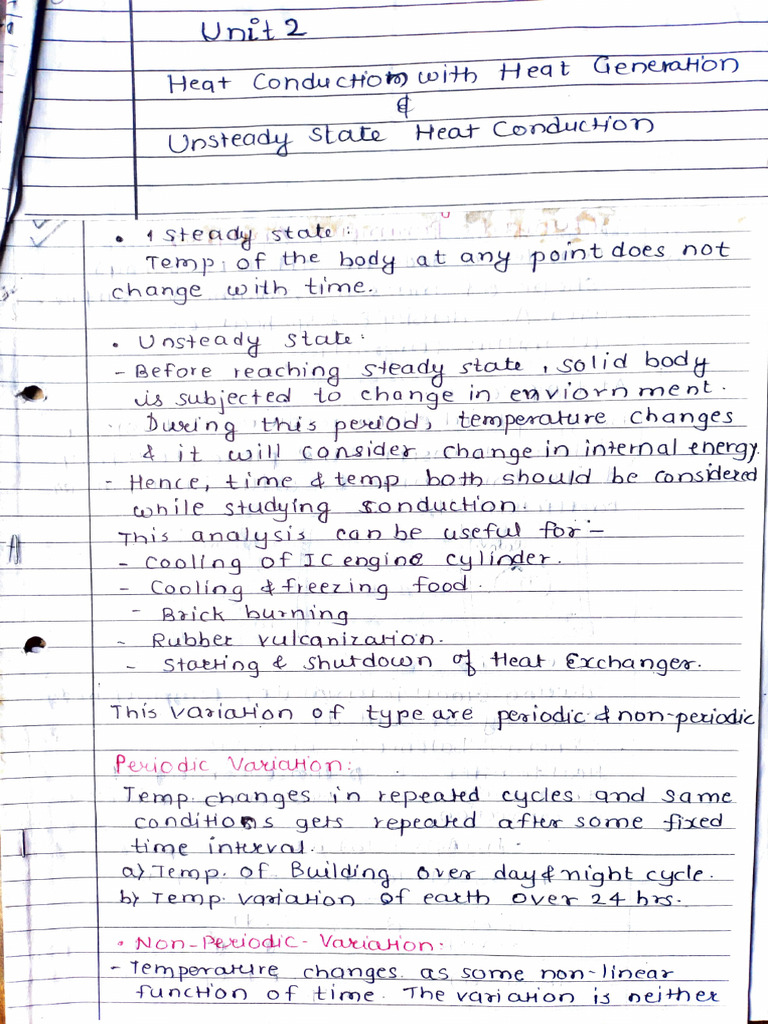 Unit 2
Heat Conduction with Heat Generation
&
Unsteady State Heat Conduction
• 1 steady state:
Temp, of the body at any point does not
change with time.
• Unsteady state:
- Before reaching steady state, solid body
is subjected to change in enviornment.
During this period, temperature changes
& it will consider change in internal energy.
- Hence, time & temp both should be considered
while studying conduction.
This analysis can be useful for:-
- Cooling of IC engine cylinder.
- Cooling & freezing food.
- Brick burning
- Rubber vulcanization.
- Starting & shutdown of Heat Exchanger.
This variation of type are periodic & non-periodic
Periodic Variation:
Temp. changes in repeated cycles and same
conditions gets repeated after some fixed
time interval.
a) Temp. of Building over day & night cycle.
b) Temp. variation of earth over 24 hrs.
• Non-Periodic-Variation:
- Temperature changes as some non-linear
function of time. The variation is neither